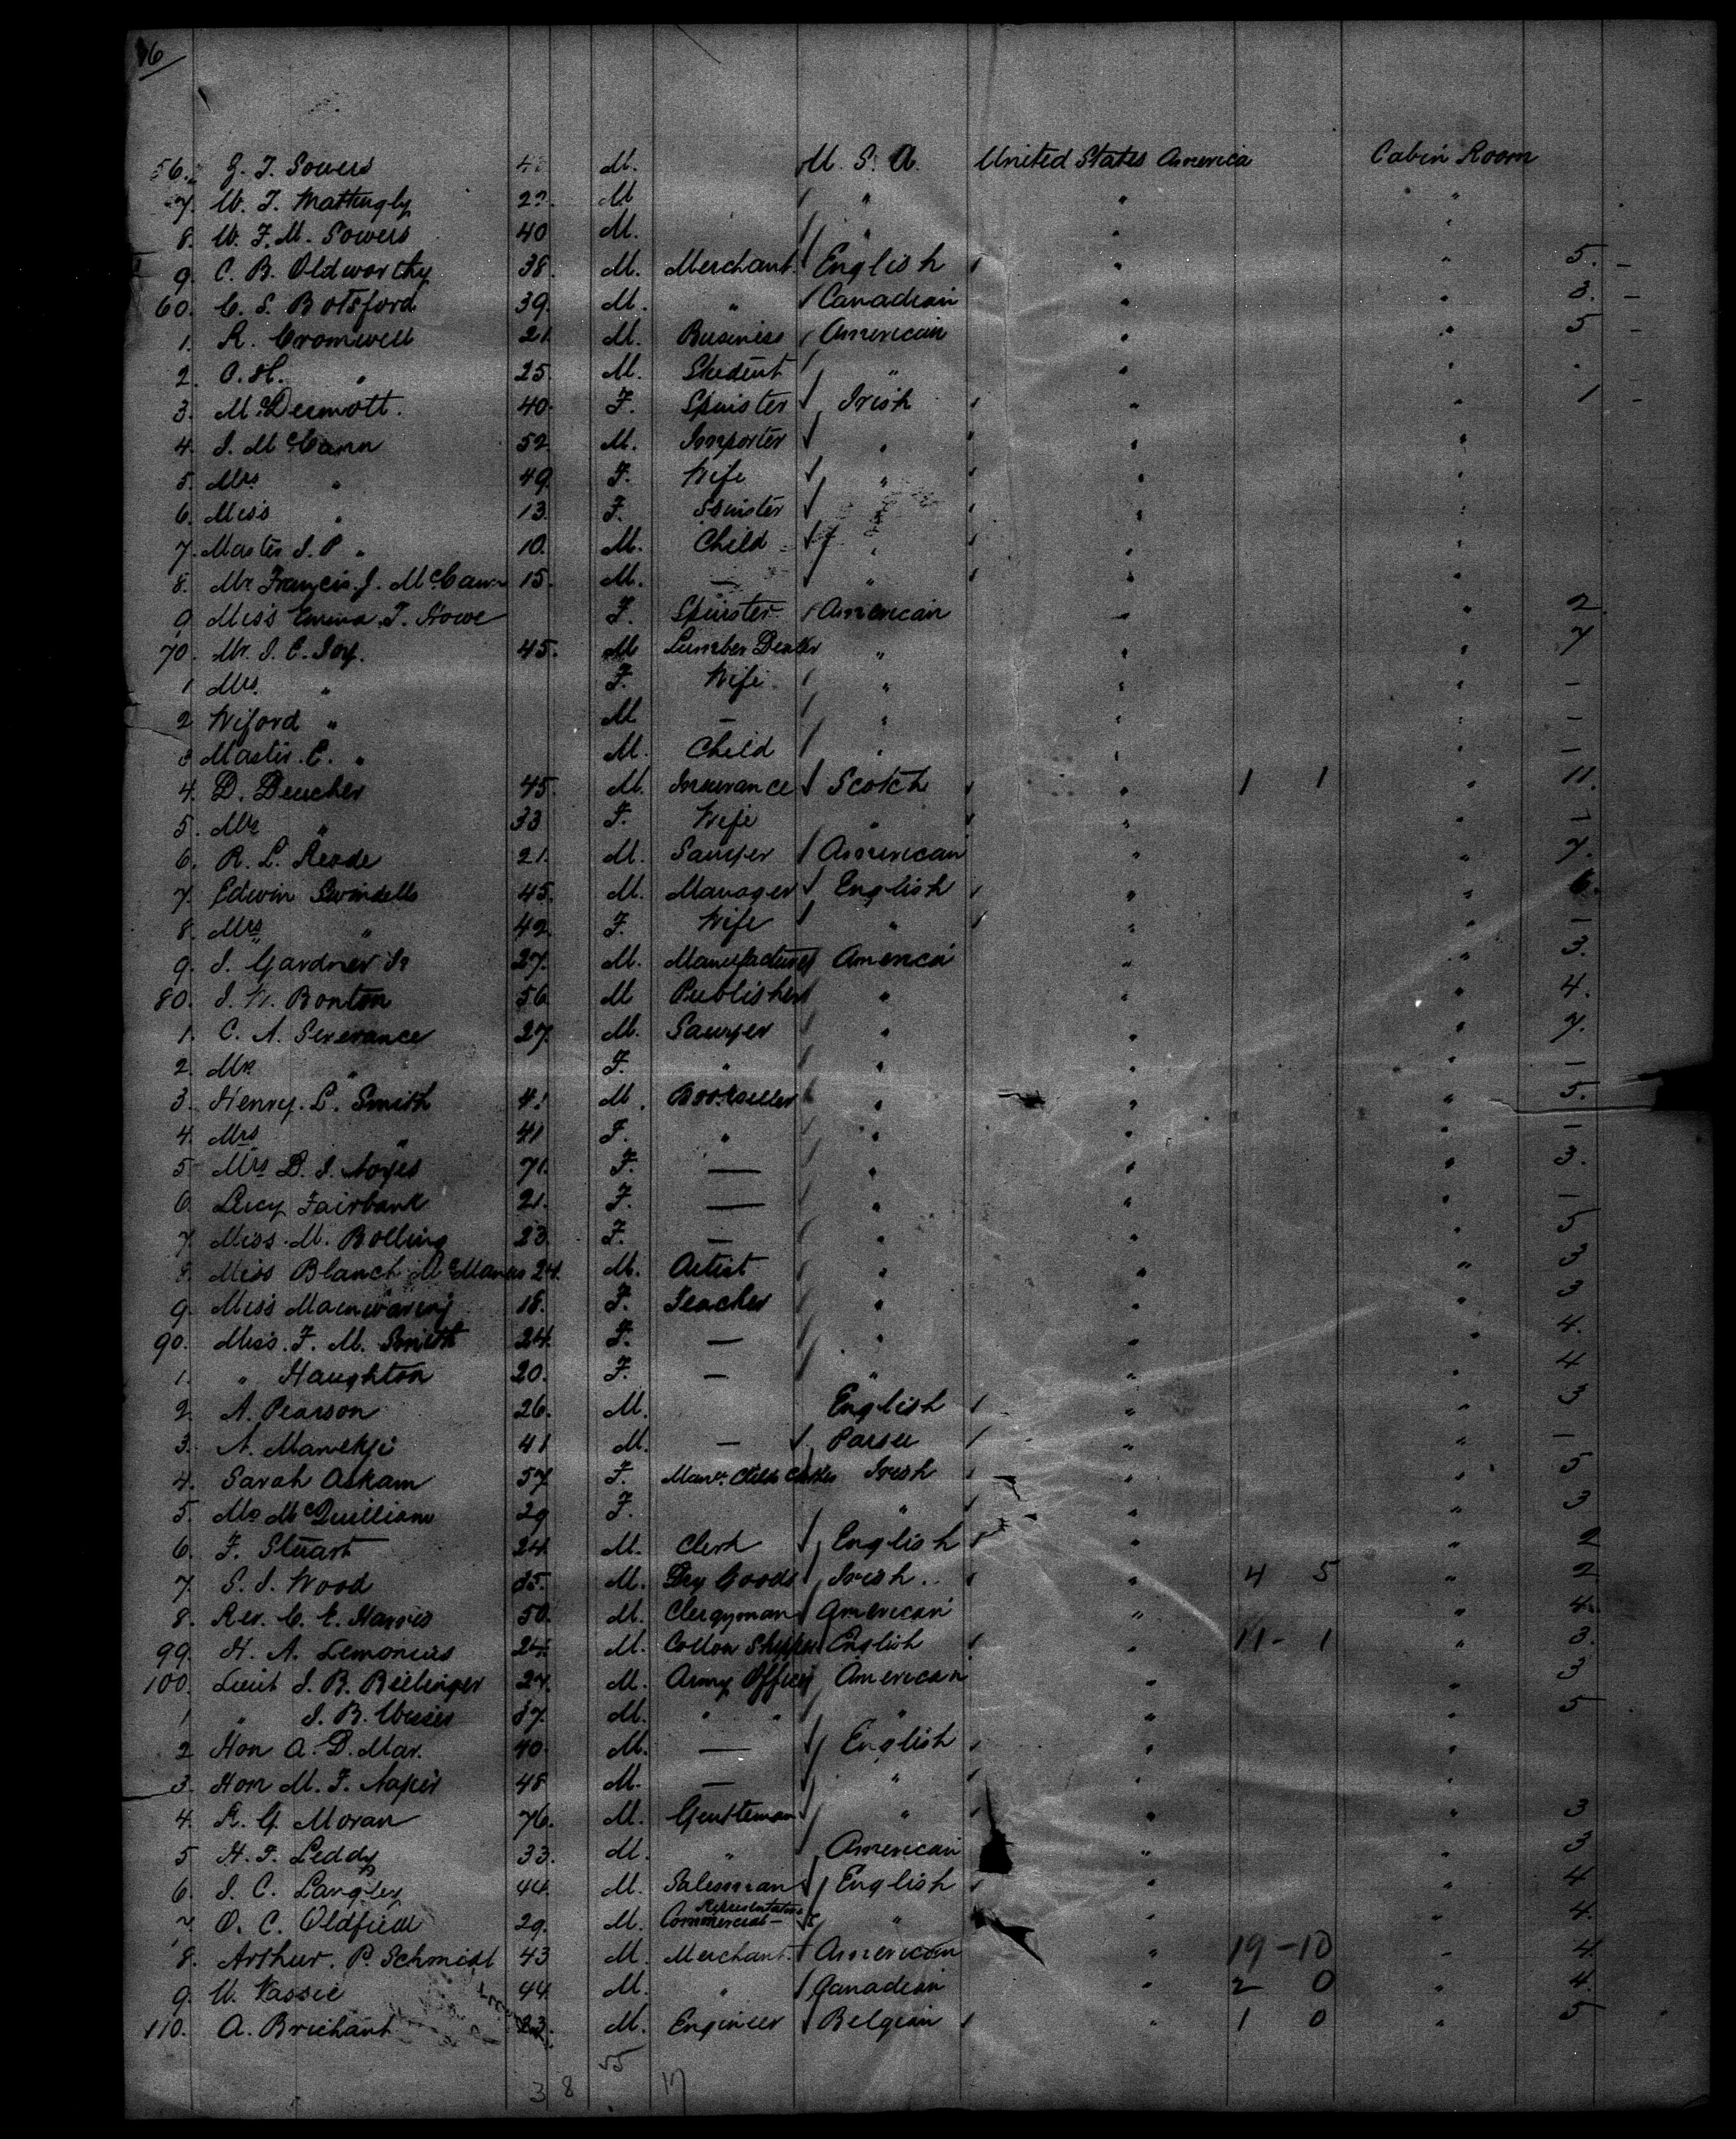 6
56. G. T. Sowers M. U. S. A. United States America Cabin Room
7. W. T. Mattingly 2 M " " "
8. W. F. M. Sowers 40 M. " " "
9. C. B. Oldworthy 38. M. Merchant. English " " 5. -
60. C. S. Botsford 39. M. " Canadian " " 3. -
1. R. Cromwell 21 M. Business American " " 5 -
2. O. H. " 25. M. Student " " " "
3. McDermott. 40. F. Spinster Irish " " 1 -
4. J. McCann 52 M. Importer " " "
5. Mrs " 49 F. Wife " " "
6. Miss " 13. F. Spinster " " "
7. Master J. P " 10. M. Child " " "
8. Mr. Francis. J. McCann 15. M. — " " "
9 Miss Emma. T. Howe F. Spinster American " " 2.
70. Mr. J. C. Joy. 45. M Lumber Dealer " " " 7
1 Mrs. " F. Wife " " " —
2 Wiford " M — " " " —
3 Master. C. " M. Child " " " —
4. D. Deucher 45. M. Insurance Scotch " 1 1 " 11.
5. Mrs " 33 F. Wife " " " —
6. R. L. Reade 21. M. Sawyer American " " 7.
7. Edwin Swindells 45. M. Manager English " " 6.
8. Mrs " 42. F. Wife " " " —
9. J. Gardner Jr 27. M. Manufacturer America " " 3.
80. J. W. Bonton 56 M Publisher " " " 4.
1. C. A. Severance 27. M. Sawyer " " " 7.
2. Mrs. " F. " " " " —
3. Henry. L. Smith 41 M. Bookseller " " " 5.
4. Mrs " 41 F. " " " " —
5 Mrs D. J. Noyes 71. F. — " " " 3.
6. Lucy Fairbank 21. F. — " " " —
7. Miss. M. Bolling 23. F. — " " " 5
8. Miss Blanch McManus 24. M. Artist " " " 3
9. Miss Mainwaring 18. F. Teacher " " " 3
90. Miss. F. M. Smith 24. F. — " " " 4.
1. " Haughton 20. F. — " " " 4
2. A. Pearson 26. M. English " " 3
3. N. Manekji 41 M. — Parsee " " —
4. Sarah Askam 57 F. Irish " " 5
5. Mrs McQuilliam 29 F. " " " 3
6. F. Stuart 24. M. Clerk English " " 2
7. S. J. Wood 35. M. Dry Goods Irish " 4 5 " 2
8. Rev. C. E. Harris 50. M. Clergyman American " " 4.
99. H. A. Lemonius 24. M. Cotton Shipper English " 11 - 1 " 3.
100. Lieut J. B. Bellinger 27. M. Army Officer American " " 3
1 " J. B. 37. M. " " " " " 5
2 Hon A. D. Mar. 40. M. — English " "
3. Hon M. F. Napier 48 M. — " " "
4. R. G. Moran 76. M. Gentleman " " " 3
5 H. F. Leddy 33. M. " American " " 3
6. J. C. Langley 44. M. Salesman English " " 4
7 O. C. Oldfield 29. M. Commercial — Representative " " " 4.
8. Arthur. P. Schmidt 43 M. Merchant. American " 19 - 10 " 4.
9. W. Vassie 44. M. " Canadian " 2 0 " 4.
110. A. Brichant 23. M. Engineer Belgian " 1 0 " 5
55
3 8 17